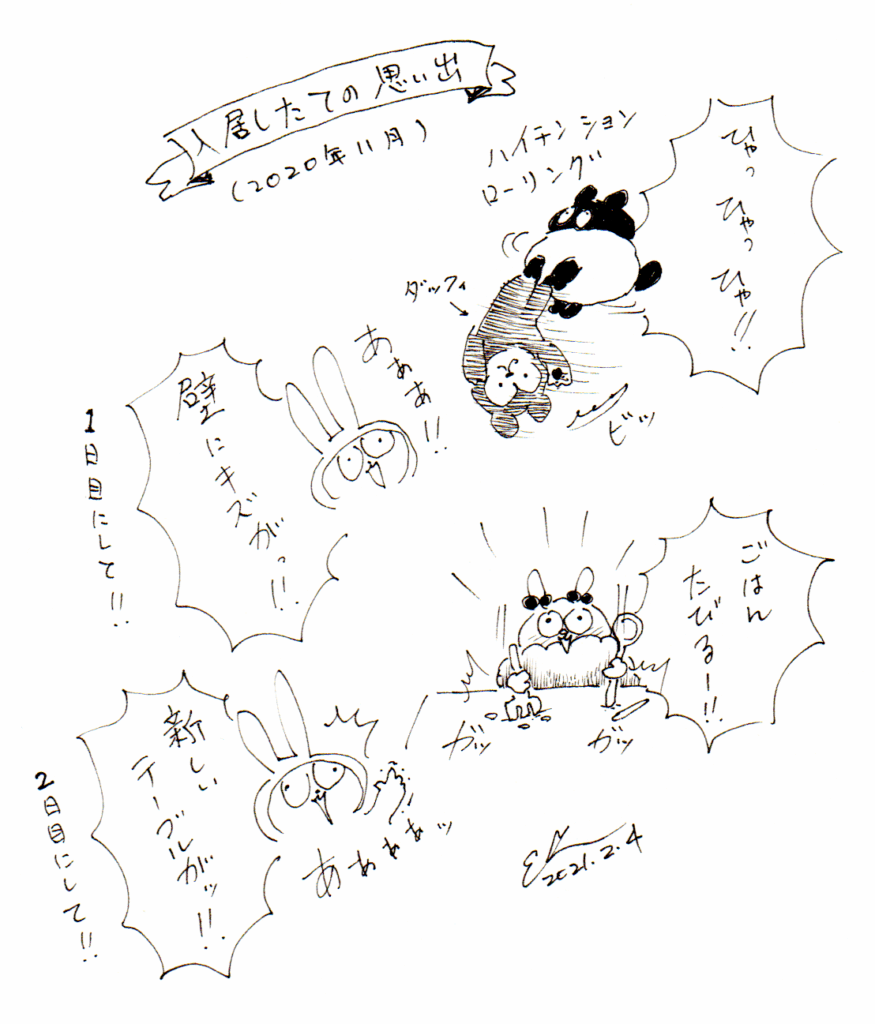 入居したての思い出
(2020年11月)
ハイテンション
ローリング
ひゃっ
ひゃっ
ひゃ!!
ダッフィ
ビッ
あぁぁぁ!!
壁にキズがっ!!
1日目にして!!
ごはん
たびるー!!
ガッ
ガッ
新しい
テーブルがッ!!
あぁぁぁぁッ
2日目にして!!
2021.2.4